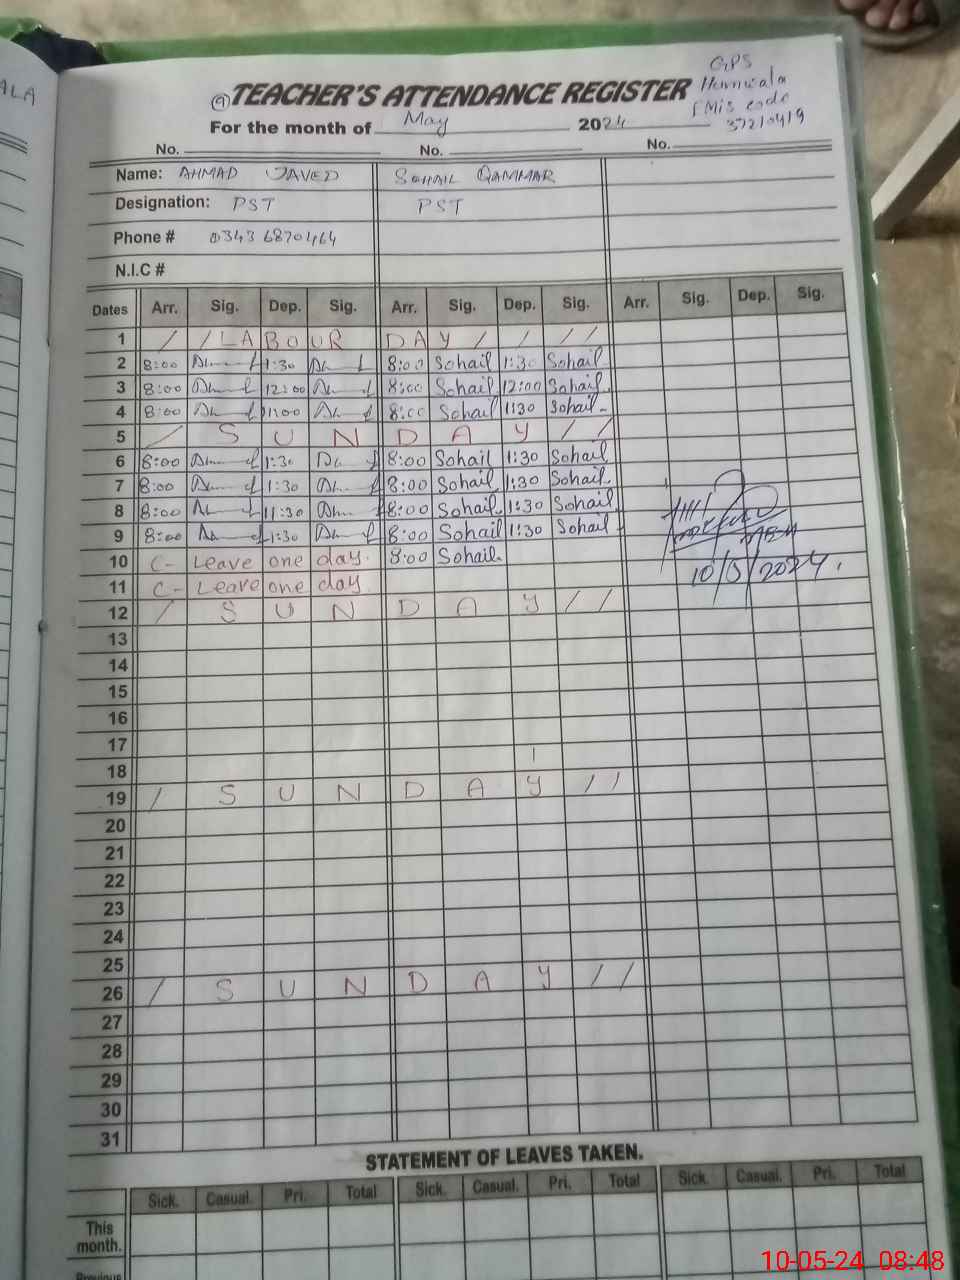 ALA
GPS
TEACHER'S ATTENDANCE REGISTER
EMIS code
37210419
For the month of May 2024
No. No. No.
Name: AHMAD JAVED SOHAIL QAMMAR
Designation: PST PST
Phone # 0343 6870464
N.I.C #
Dates Arr. Sig. Dep. Sig. Arr. Sig. Dep. Sig. Arr. Sig. Dep. Sig.
1 / / LABOUR DAY / / / /
2 8:00 1:30 8:00 Sohail 1:30 Sohail
3 8:00 12:00 8:00 Sohail 12:00 Sohail
4 8:00 8:00 Sohail 1:30 Sohail
5 / S U N D A Y / /
6 8:00 1:30 8:00 Sohail 1:30 Sohail
7 8:00 1:30 8:00 Sohail 1:30 Sohail
8 8:00 11:30 8:00 Sohail 1:30 Sohail
9 8:00 1:30 8:00 Sohail 1:30 Sohail
10 C- Leave one day. 8:00 Sohail
10/5/2024.
11 C- Leave one day.
12 / S U N D A Y / /
13
14
15
16
17
18
19 / S U N D A Y / /
20
21
22
23
24
25
26 / S U N D A Y / /
27
28
29
30
31
STATEMENT OF LEAVES TAKEN.
Sick. Casual. Pri. Total Sick. Casual. Pri. Total Sick. Casual. Pri. Total
This
month.
Previous
10-05-24 08:48